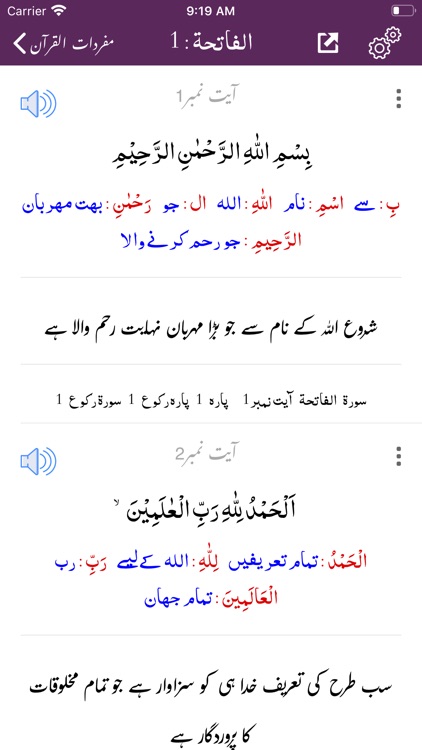 Carrier 9:19 AM
مفردات القرآن الفاتحة : 1
آیت نمبر1
بِسْمِ اللهِ الرَّحْمٰنِ الرَّحِيْمِ
بِ: سے اسْمِ: نام اللهِ: الله ال: جو رَحْمٰنِ: بهت مهربان
الرَّحِيمِ: جو رحم کرنے والا
شروع اللہ کے نام سے جو بڑا مہربان نہایت رحم والا ہے
سورة الفاتحة آیت نمبر1 پاره 1 پاره رکوع 1 سورة رکوع 1
آیت نمبر2
اَلْحَمْدُ لِلّٰهِ رَبِّ الْعٰلَمِيْنَ ۙ
الْحَمْدُ: تمام تعریفیں لِلّٰهِ: الله کے لیے رَبِّ: رب
الْعَالَمِينَ: تمام جهان
سب طرح کی تعریف خدا ہی کو سزاوار ہے جو تمام مخلوقات
کا پروردگار ہے